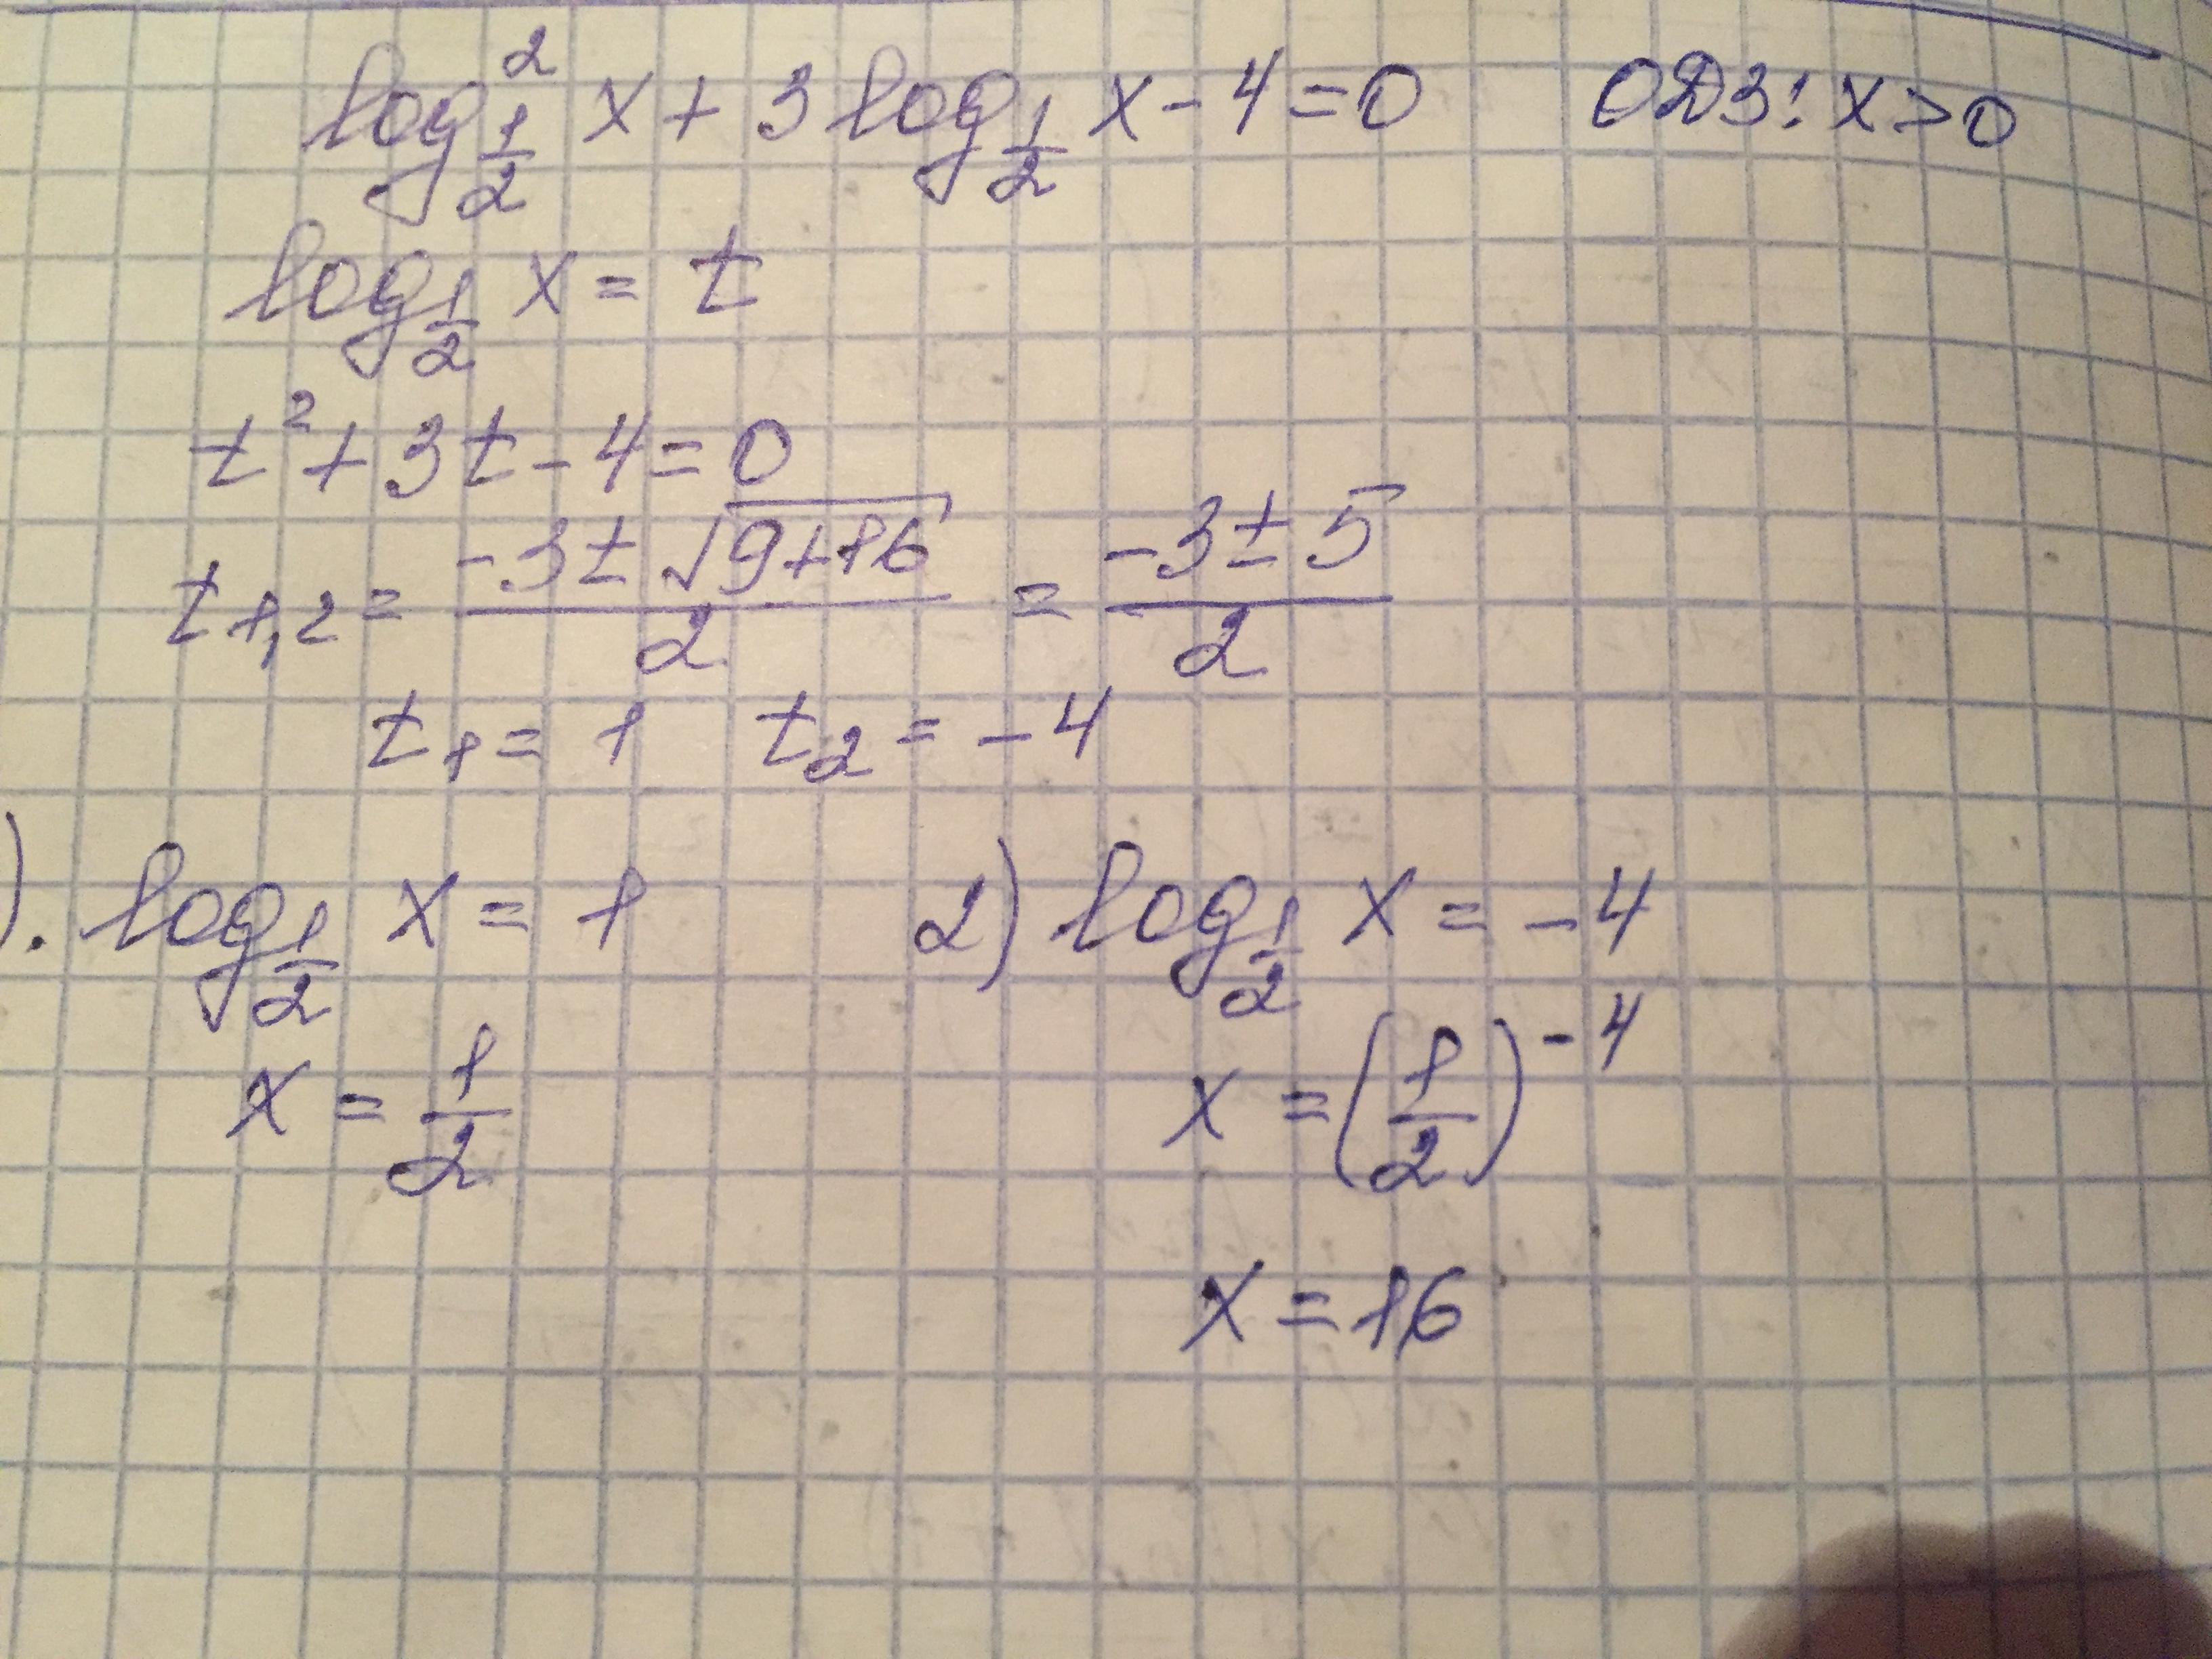 log²_{1/2} x + 3 log_{1/2} x - 4 = 0 ОДЗ: x > 0
log_{1/2} x = t
t² + 3t - 4 = 0
t_{1,2} = (-3 ± √(9+16))/2 = (-3 ± 5)/2
t₁ = 1 t₂ = -4
). log_{1/2} x = 1 2) log_{1/2} x = -4
x = 1/2 x = (1/2)^{-4}
x = 16